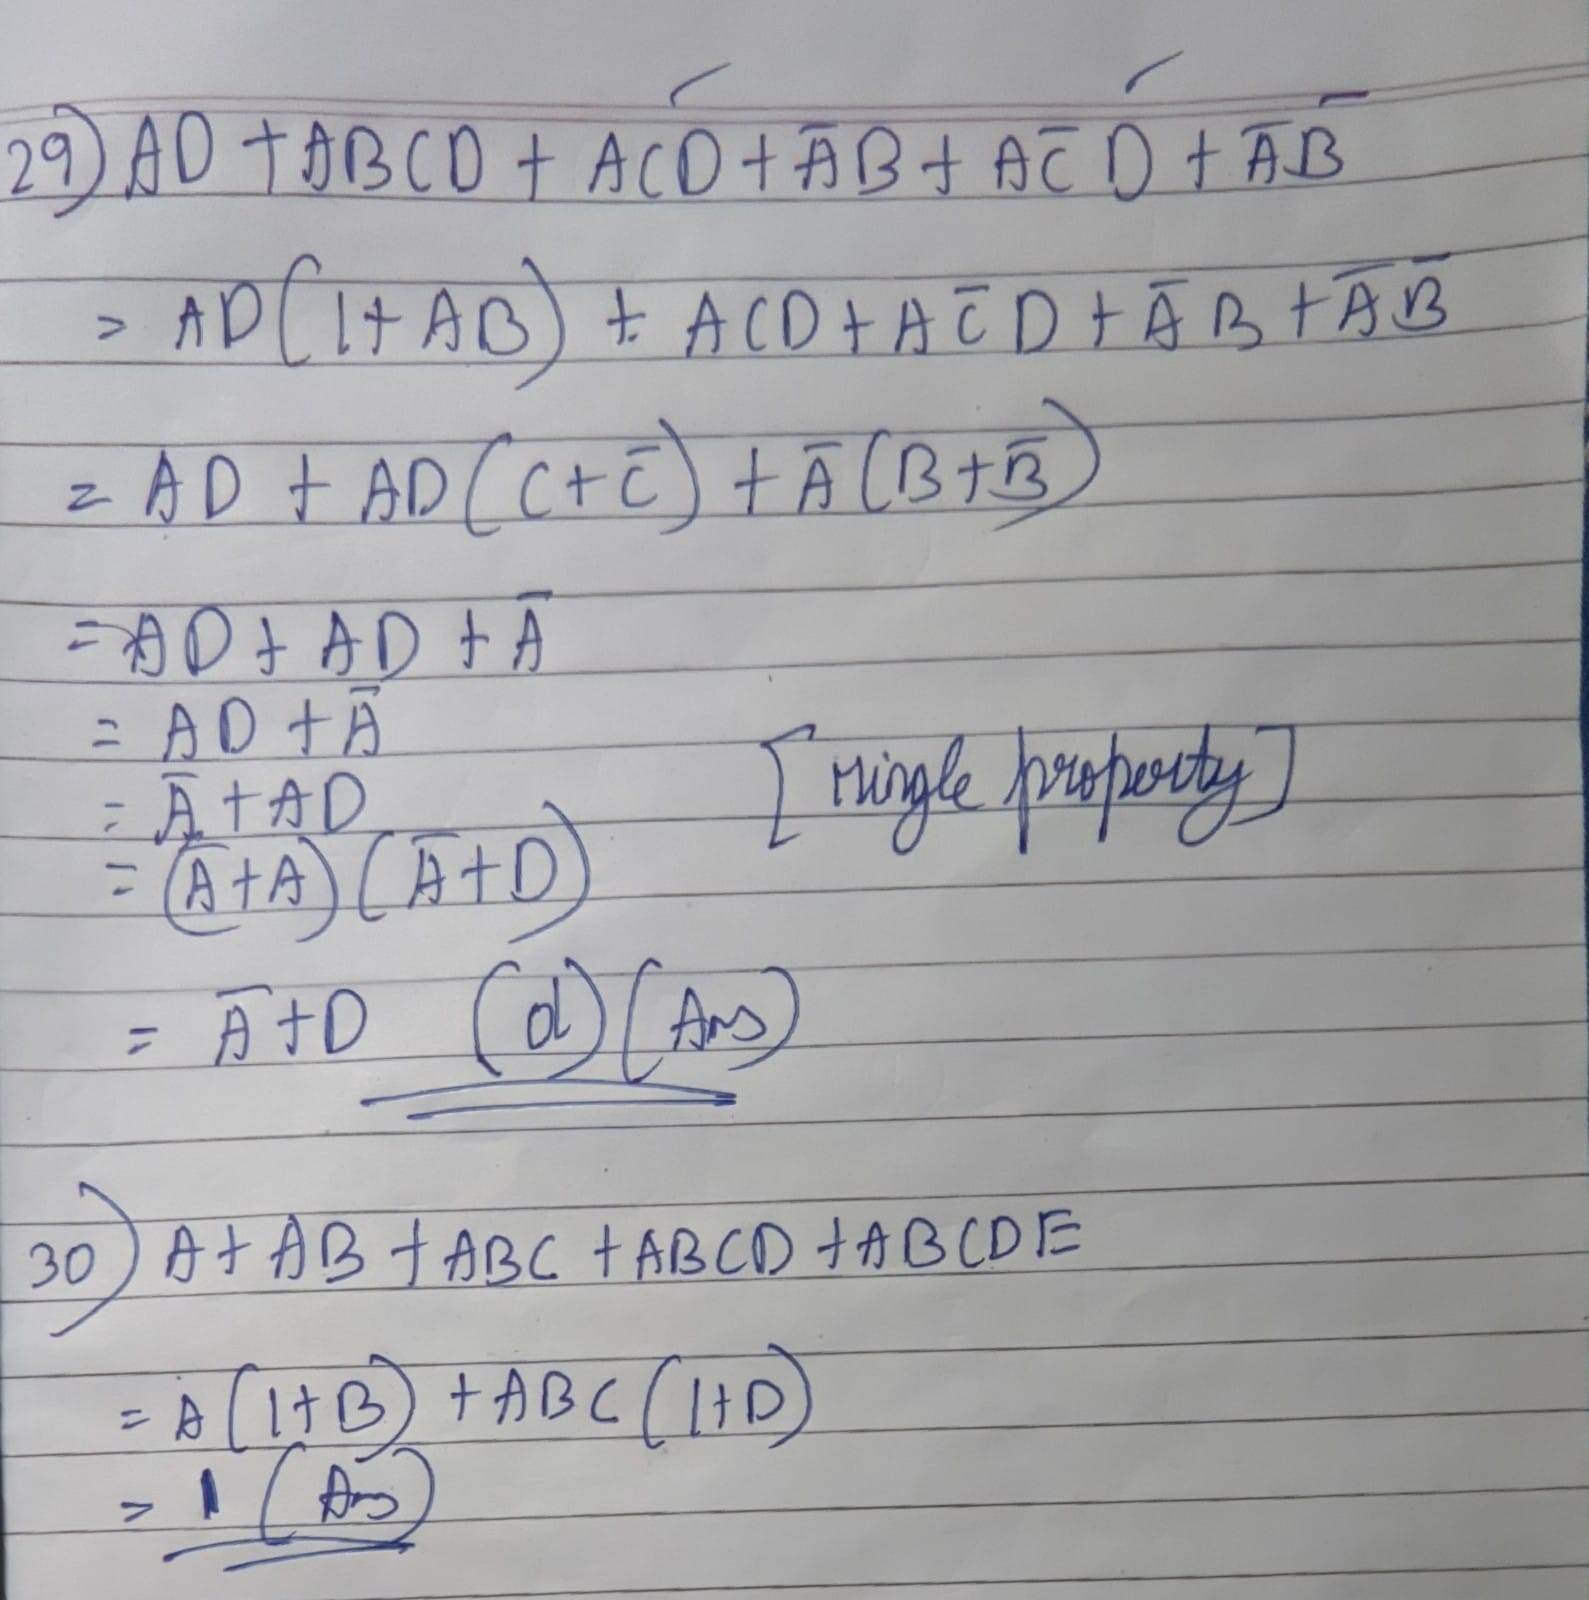 29) AD + ABCD + ACD + A̅B + AC̅D + A̅B̅
= AD(1+AB) + ACD + AC̅D + A̅B + A̅B̅
= AD + AD(C+C̅) + A̅(B+B̅)
= AD + AD + A̅
= AD + A̅
= A̅ + AD [single property]
= (A̅+A)(A̅+D)
= A̅+D (d) (Ans)
30) A + AB + ABC + ABCD + ABCDE
= A(1+B) + ABC(1+D)
= 1 (Ans)